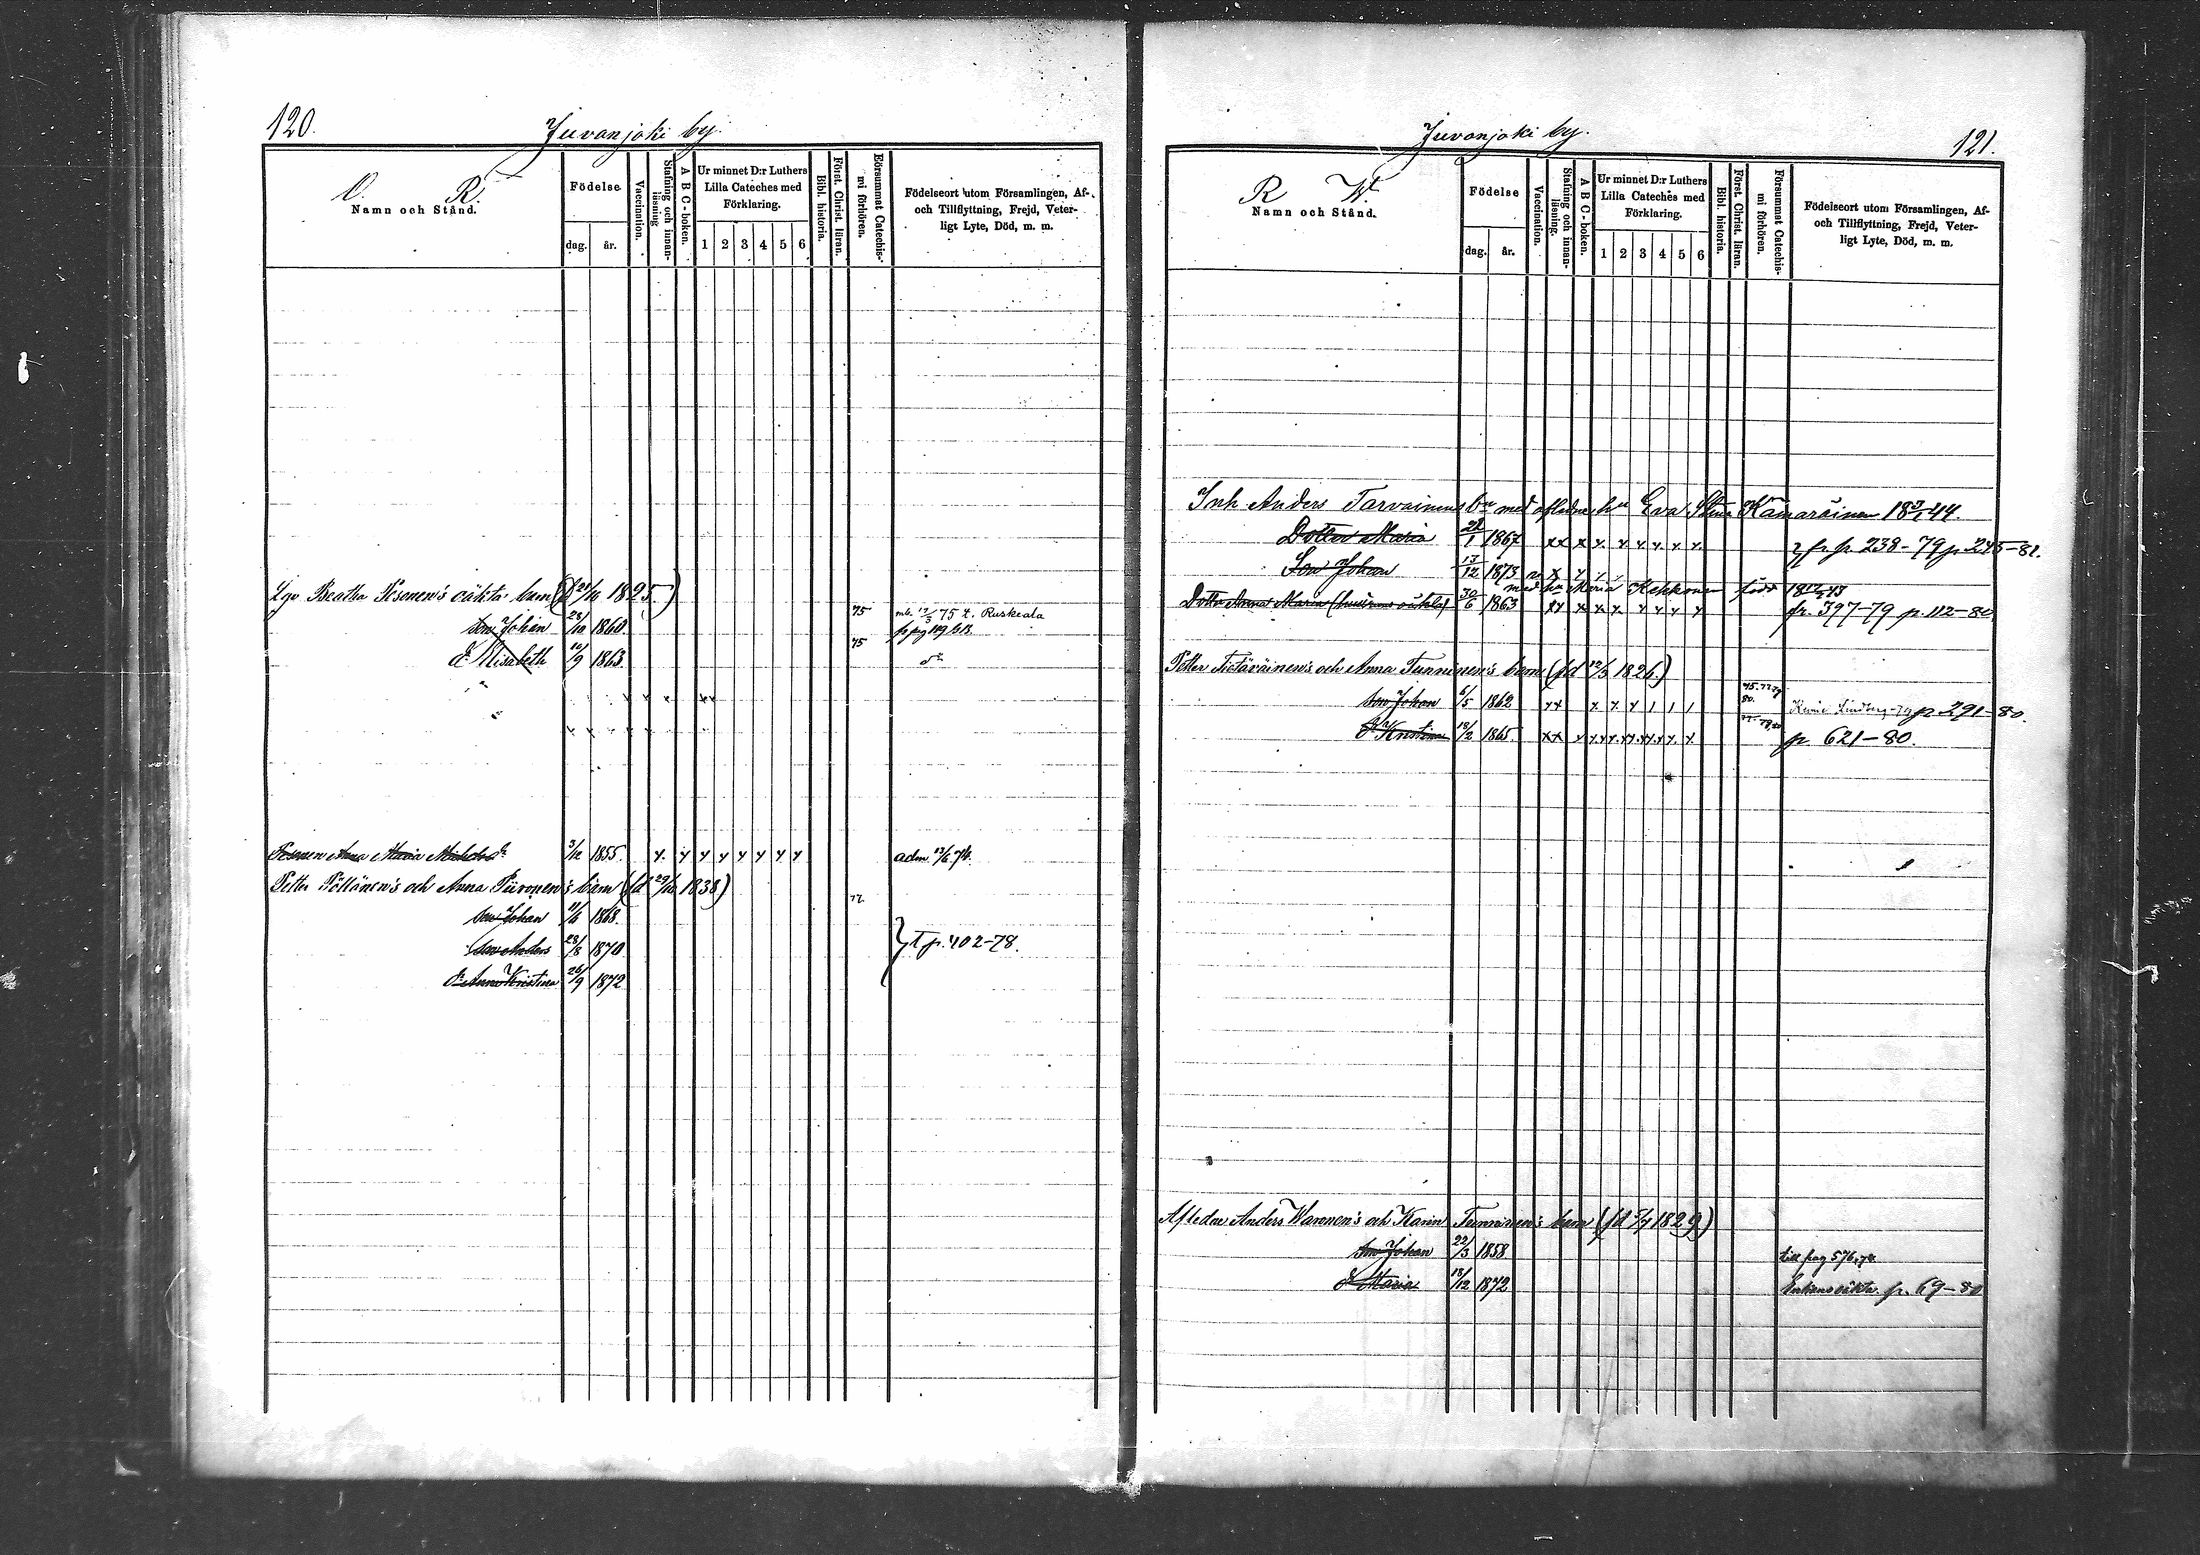 120.
Juvanjoki by.
O. R.
Namn och Stånd.
Födelse
dag. år.
Vaccination.
Stafning och innanläsning
A B C-boken.
Ur minnet D:r Luthers
Lilla Cateches med
Förklaring.
1 2 3 4 5 6
Bibl. historia.
Först. Christ. läran.
Försummat Catechismi förhören.
Födelseort utom Församlingen, Af-
och Tillflyttning, Frejd, Veter-
ligt Lyte, Död, m. m.
Beatha Pesonen's oäkta barn 1825.)
son Johan 28/10 1860. 75 75 t. Ruskeala
d:r Elisabeth 10/9 1863. 75
Pesonen Anna Maria 3/12 1855. adm 13/6 74.
Petter Pöllänen's och Anna Piironen's barn (fd 29/10 1838)
son Johan 11/6 1868. 77.
son Anders 28/8 1870 t p. 402-78.
d:r Anna Kristina 26/9 1872
Juvanjoki by.
121.
R W.
Namn och Stånd.
Födelse
dag. år.
Vaccination.
Stafning och innanläsning.
A B C-boken.
Ur minnet D:r Luthers
Lilla Cateches med
Förklaring.
1 2 3 4 5 6
Bibl. historia.
Först. Christ. läran.
Försummat Catechismi förhören.
Födelseort utom Församlingen, Af-
och Tillflyttning, Frejd, Veter-
ligt Lyte, Död, m. m.
Inh Anders Tarvainens bn med aflidne hu Eva Stina Kämäräinen 18 3/1 44.
Dotter Maria 22/1 1867 fr p. 238-79 p. 245-81.
Son Johan 13/12 1873
med hu Maria Kekkonen född
Dotter Anna Maria (hustruns oäkta) 30/6 1863 fr. 397-79 p. 112-80
Petter Tietäväinen's och Anna Tunninen's barn (fd 12/3 1826.)
son Johan 6/5 1862 Lindberg-79 p 291-80.
d:r Kristina 18/2 1865. p 621-80.
Afledne Anders Waronen's och Karin Tunninen's barn (fd 5/4 1829)
son Johan 22/3 1858 till pag 576,78.
d:r Maria 18/12 1872 Enkans oäkta. p. 69-80